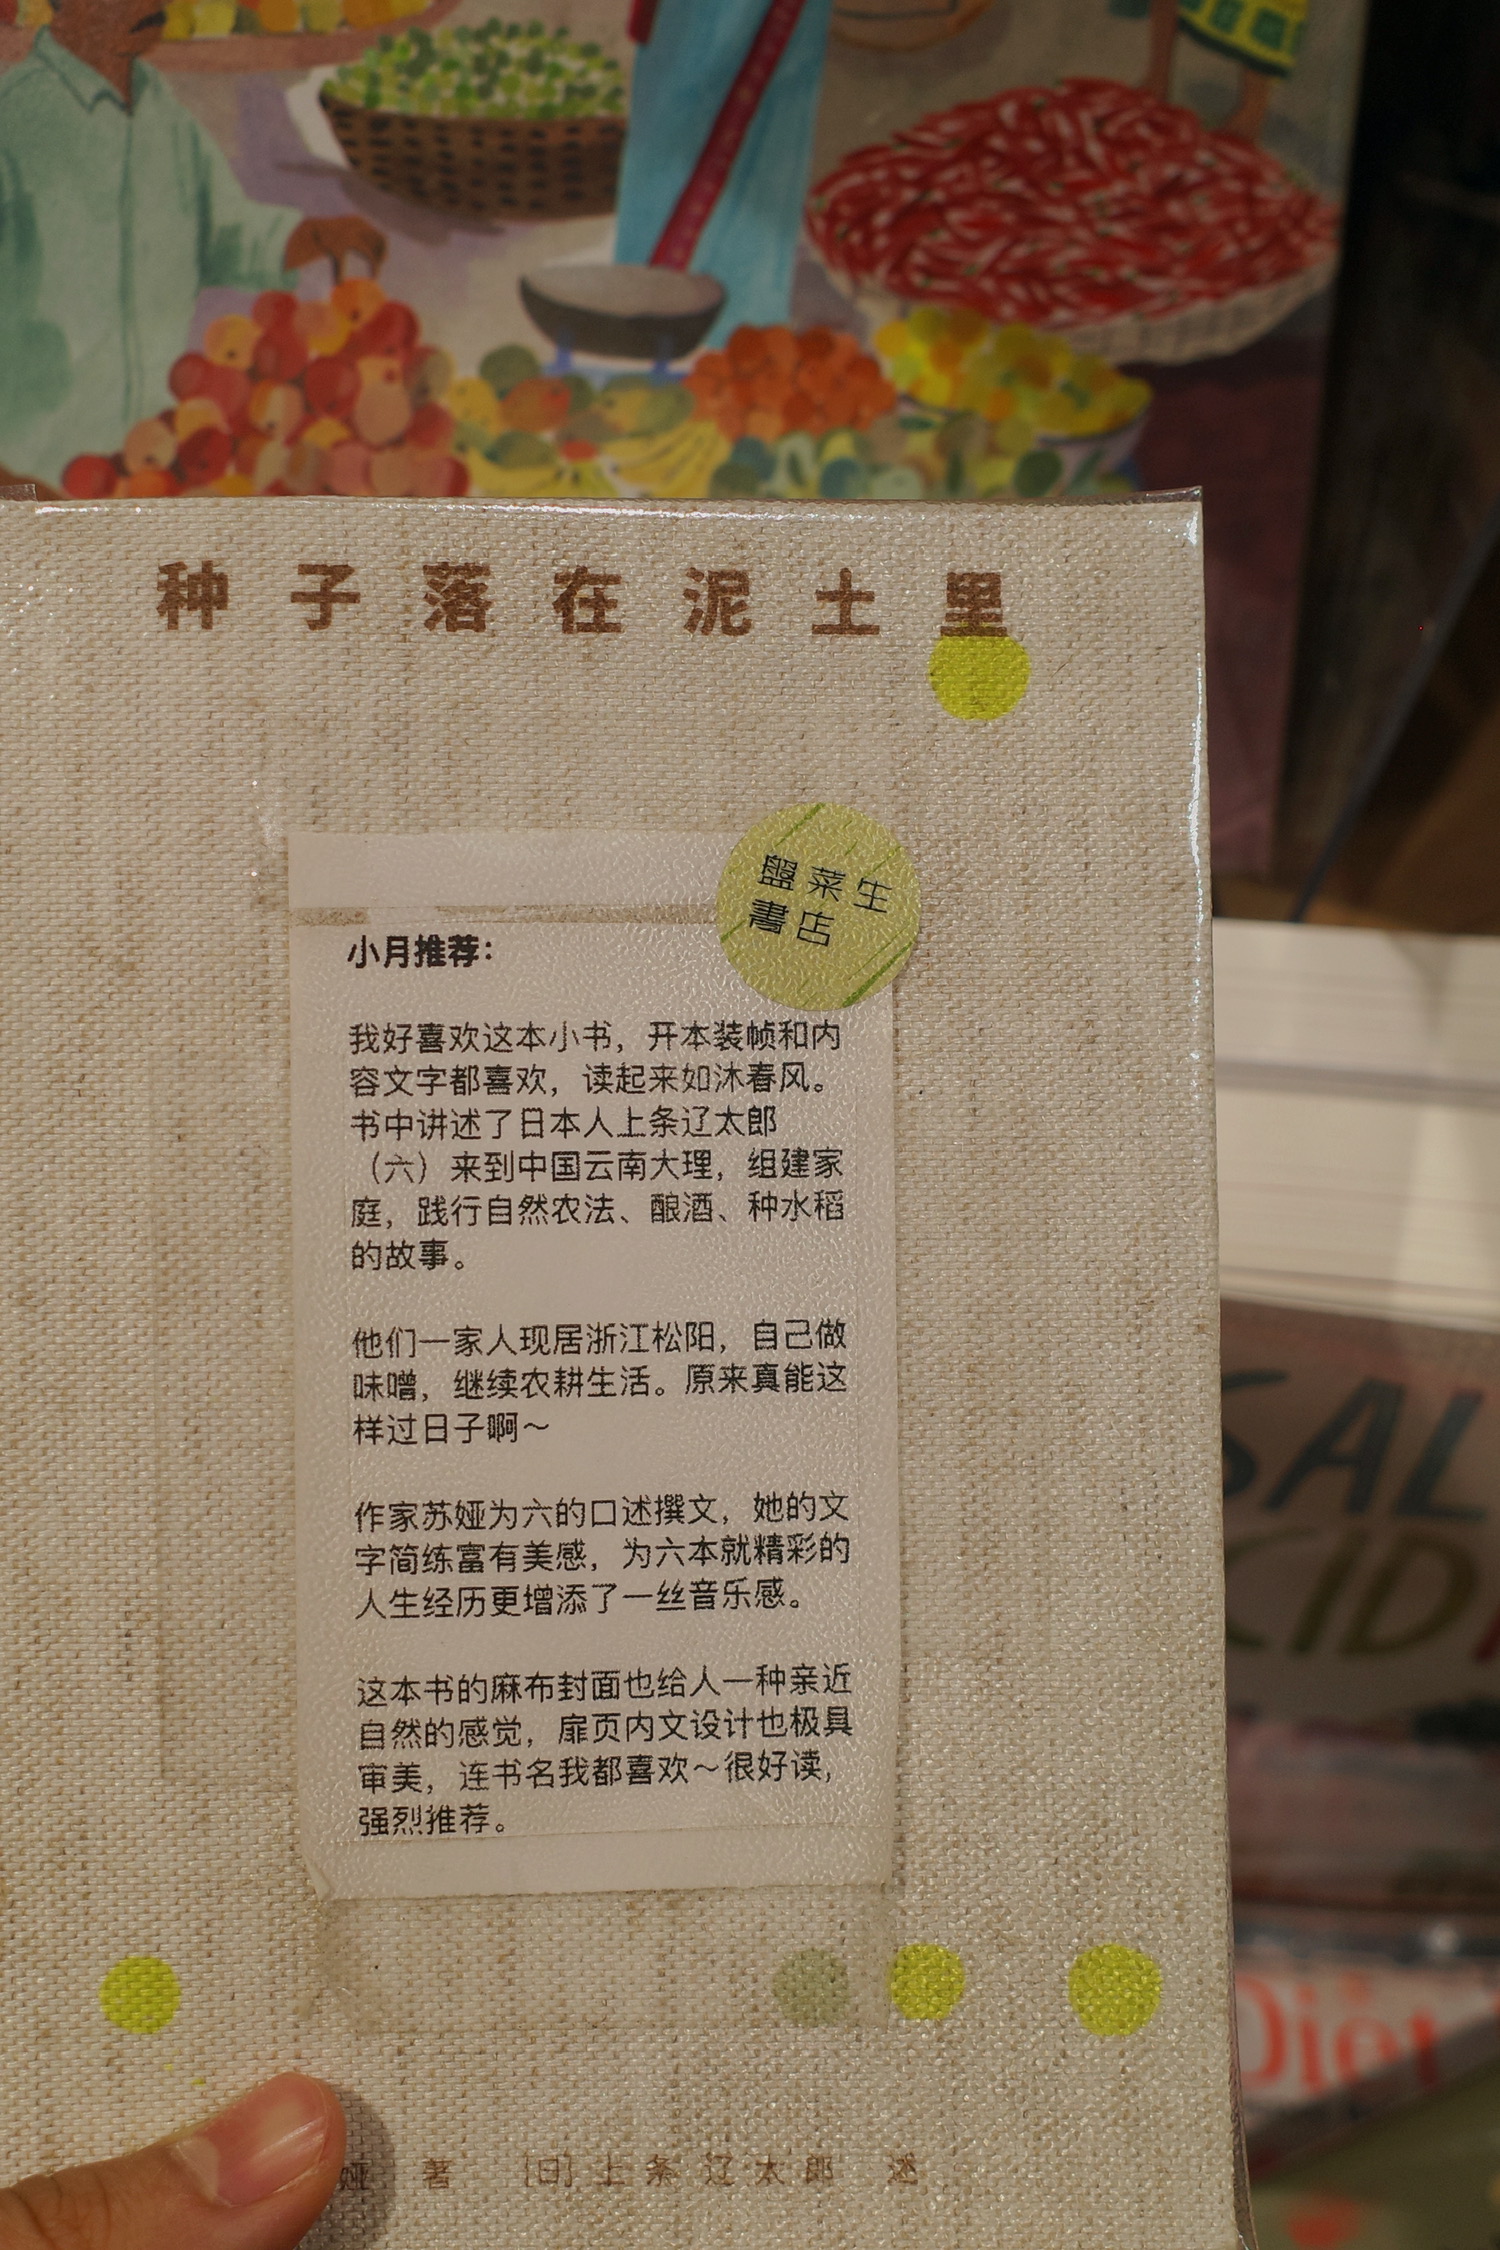 种子落在泥土里
盤菜生
書店
小月推荐：
我好喜欢这本小书，开本装帧和内
容文字都喜欢，读起来如沐春风。
书中讲述了日本人上条辽太郎
（六）来到中国云南大理，组建家
庭，践行自然农法、酿酒、种水稻
的故事。
他们一家人现居浙江松阳，自己做
味噌，继续农耕生活。原来真能这
样过日子啊～
作家苏娅为六的口述撰文，她的文
字简练富有美感，为六本就精彩的
人生经历更增添了一丝音乐感。
这本书的麻布封面也给人一种亲近
自然的感觉，扉页内文设计也极具
审美，连书名我都喜欢～很好读，
强烈推荐。
娅 著 [日]上条辽太郎 述
SAL
CID
Diot